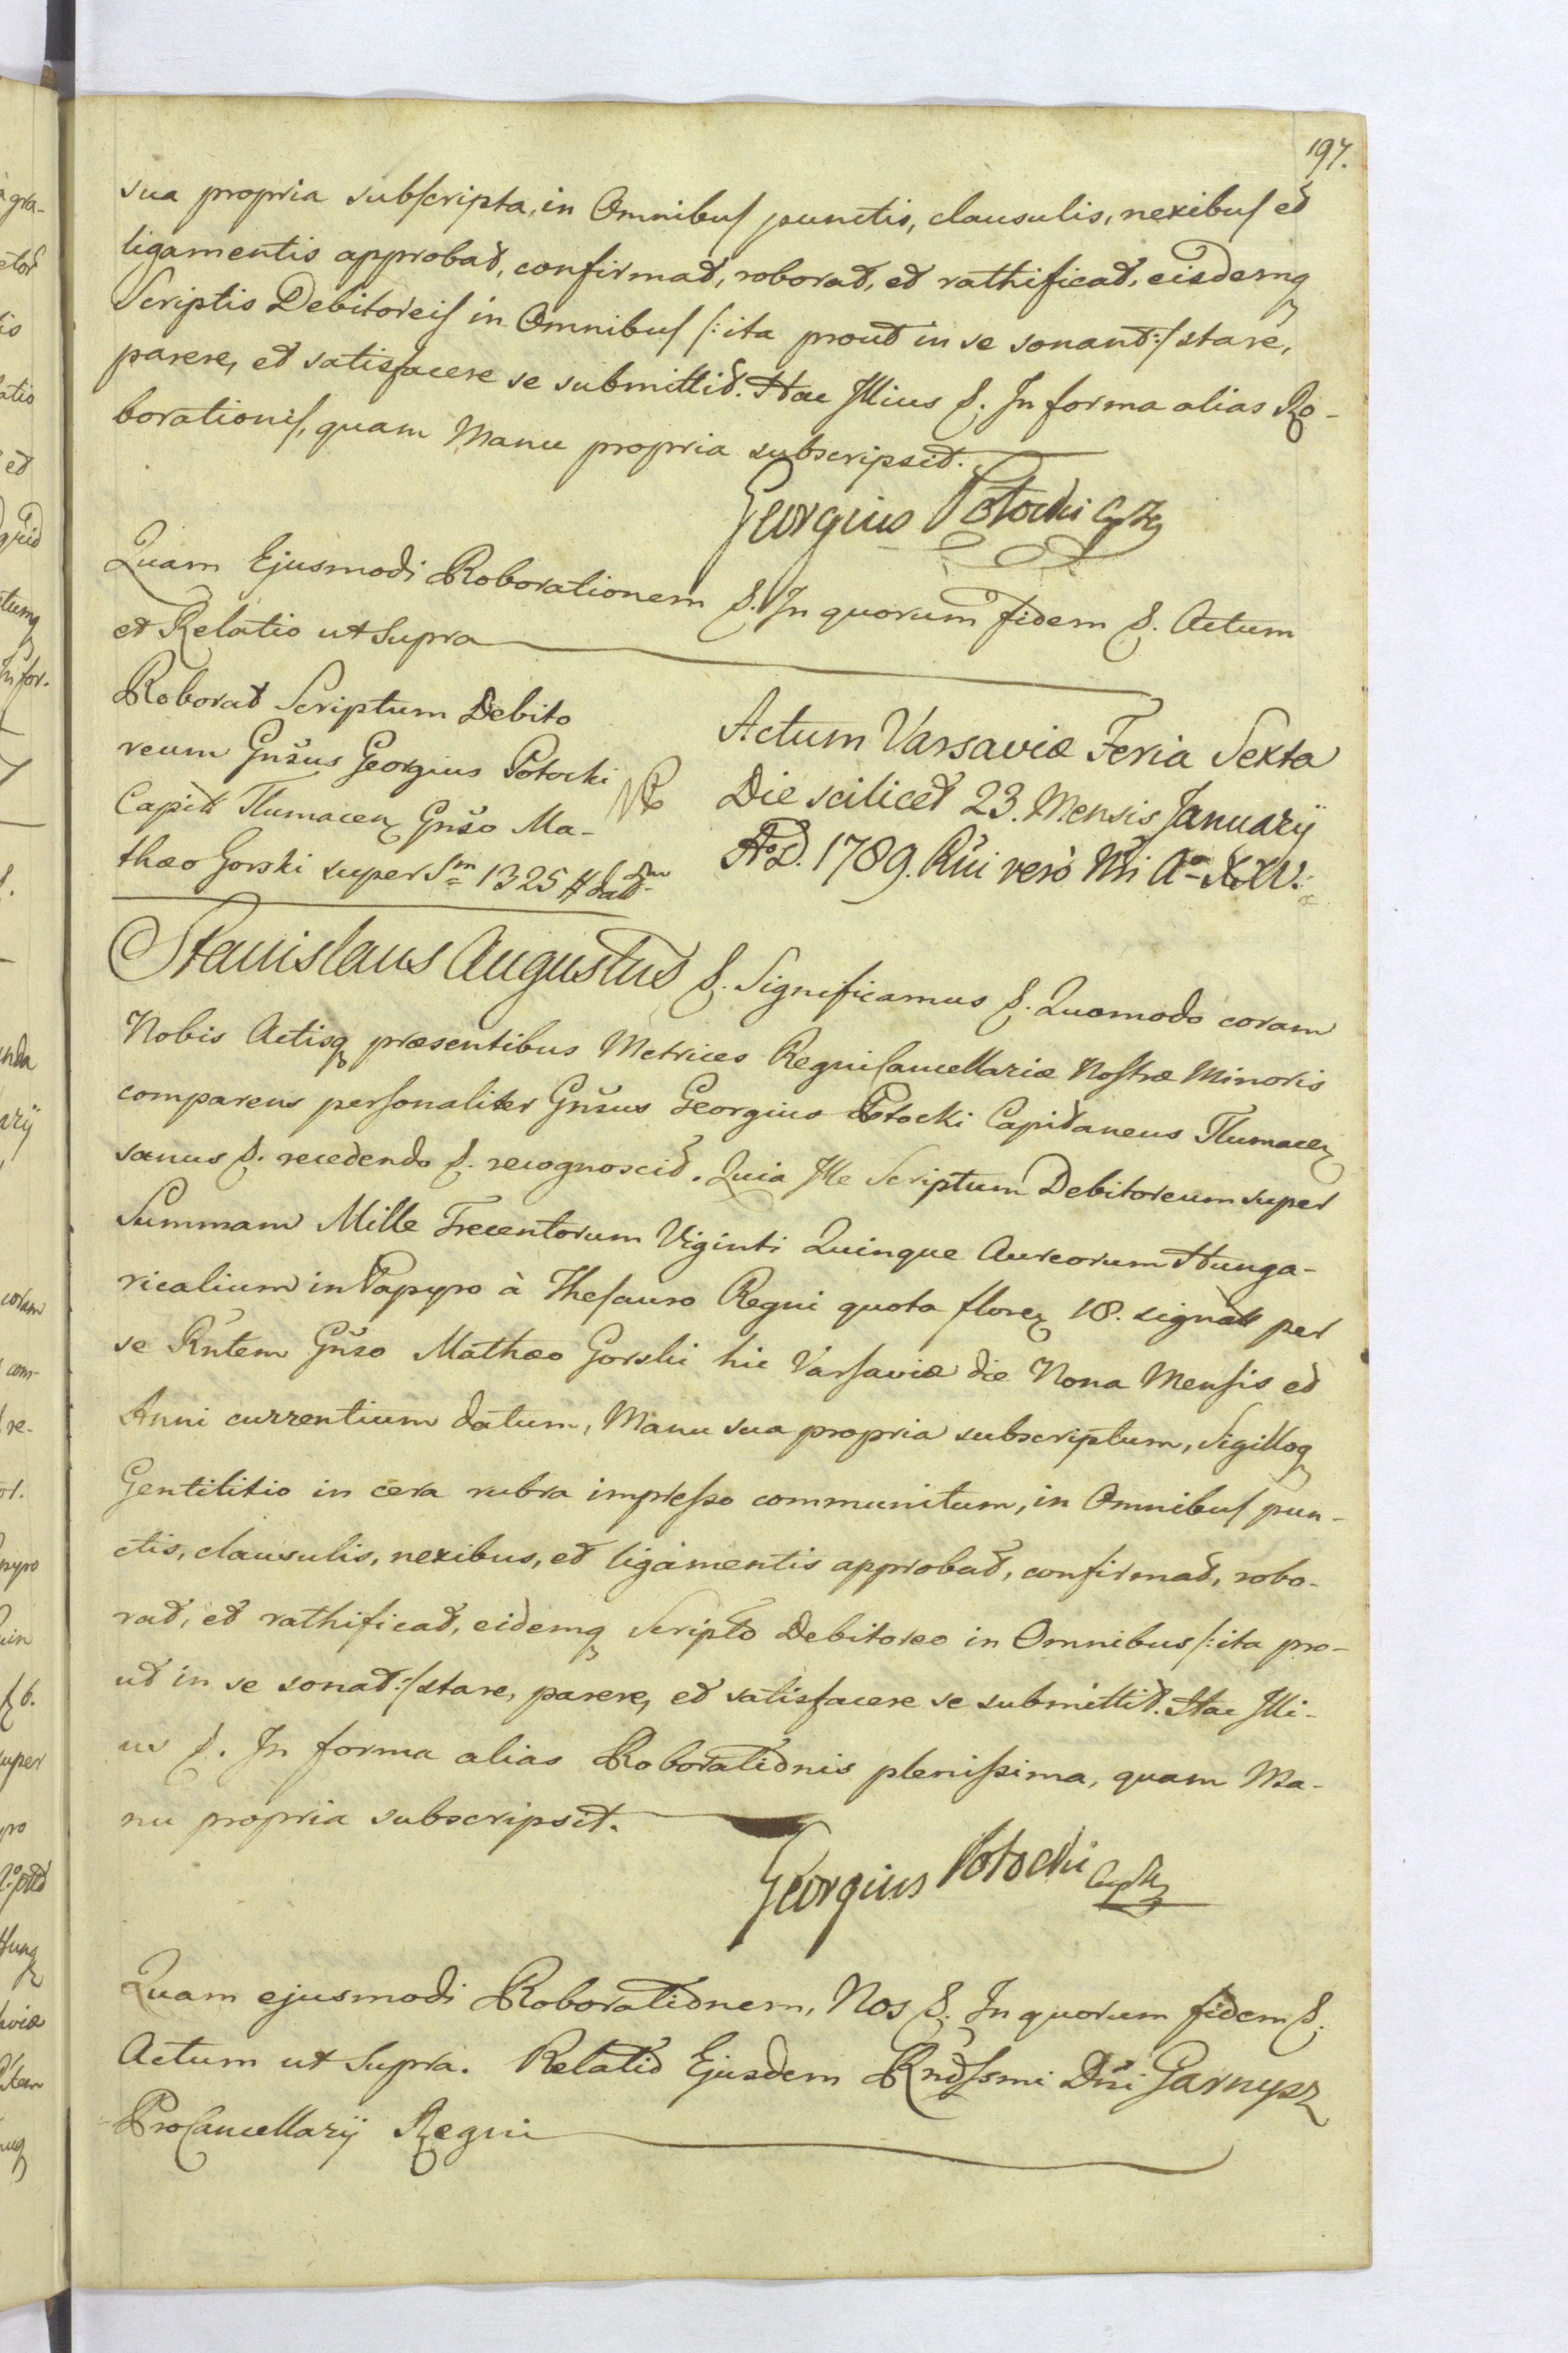 197.
sua propria subscripta, in Omnibus punctis, clausulis, nexibus et
ligamentis approbat, confirmat, roborat, et rathificat, eisdemq
Scriptis Debitoreis in Omnibus /: ita prout in se sonant :/ stare,
parere, et satisfacere se submittit. Hac Illius &. In forma alias Ro-
borationis, quam Manu propria subscripsit.
Georgius Potocki
Quam Ejusmodi Roborationem &. In quorum fidem &. Actum
et Relatio ut Supra
Roborat Scriptum Debito
reum Gnšus Georgius Potocki
Capitt Tlumacen Gnšo Ma-
thæo Gorski super Sm 1325 #
Actum Varsaviæ Feria Sexta
Die scilicet 23. Mensis Januarÿ
AoD. 1789. Rñi verò Nri Ao XXV.
Stanislaus Augustus &. Significamus &. Quomodo coram
Nobis Actisq præsentibus Metrices Regni Cancellariæ Nostræ Minoris
comparens personaliter Gnšus Georgius Potocki Capitaneus Tlumacen
sanus &. recedendo &. recognoscit. Quia Ille Scriptum Debitoreum super
Summam Mille Trecentorum Viginti Quinque Aureorum Hunga-
ricalium in Papyro à Thesauro Regni quota floren 18. signatt per
se Rntem Gnšo Mathæo Gorski hic Varsaviæ die Nona Mensis et
Anni currentium datum, Manu sua propria subscriptum, Sigilloq
Gentilitio in cera rubra impresso communitum, in Omnibus pun-
ctis, clausulis, nexibus, et ligamentis approbat, confirmat, robo-
rat, et rathificat, eidemq Scripto Debitoreo in Omnibus /: ita pro-
ut in se sonat :/ stare, parere, et satisfacere se submittit. Hac Illi-
us &. In forma alias Roborationis plenissima, quam Ma-
nu propria subscripsit.
Georgius Potocki
Quam ejusmodi Roborationem, Nos &. In quorum fidem &.
Actum ut Supra. Relatio Ejusdem Rndssmi Dñi Garnysz
ProCancellarÿ Regni